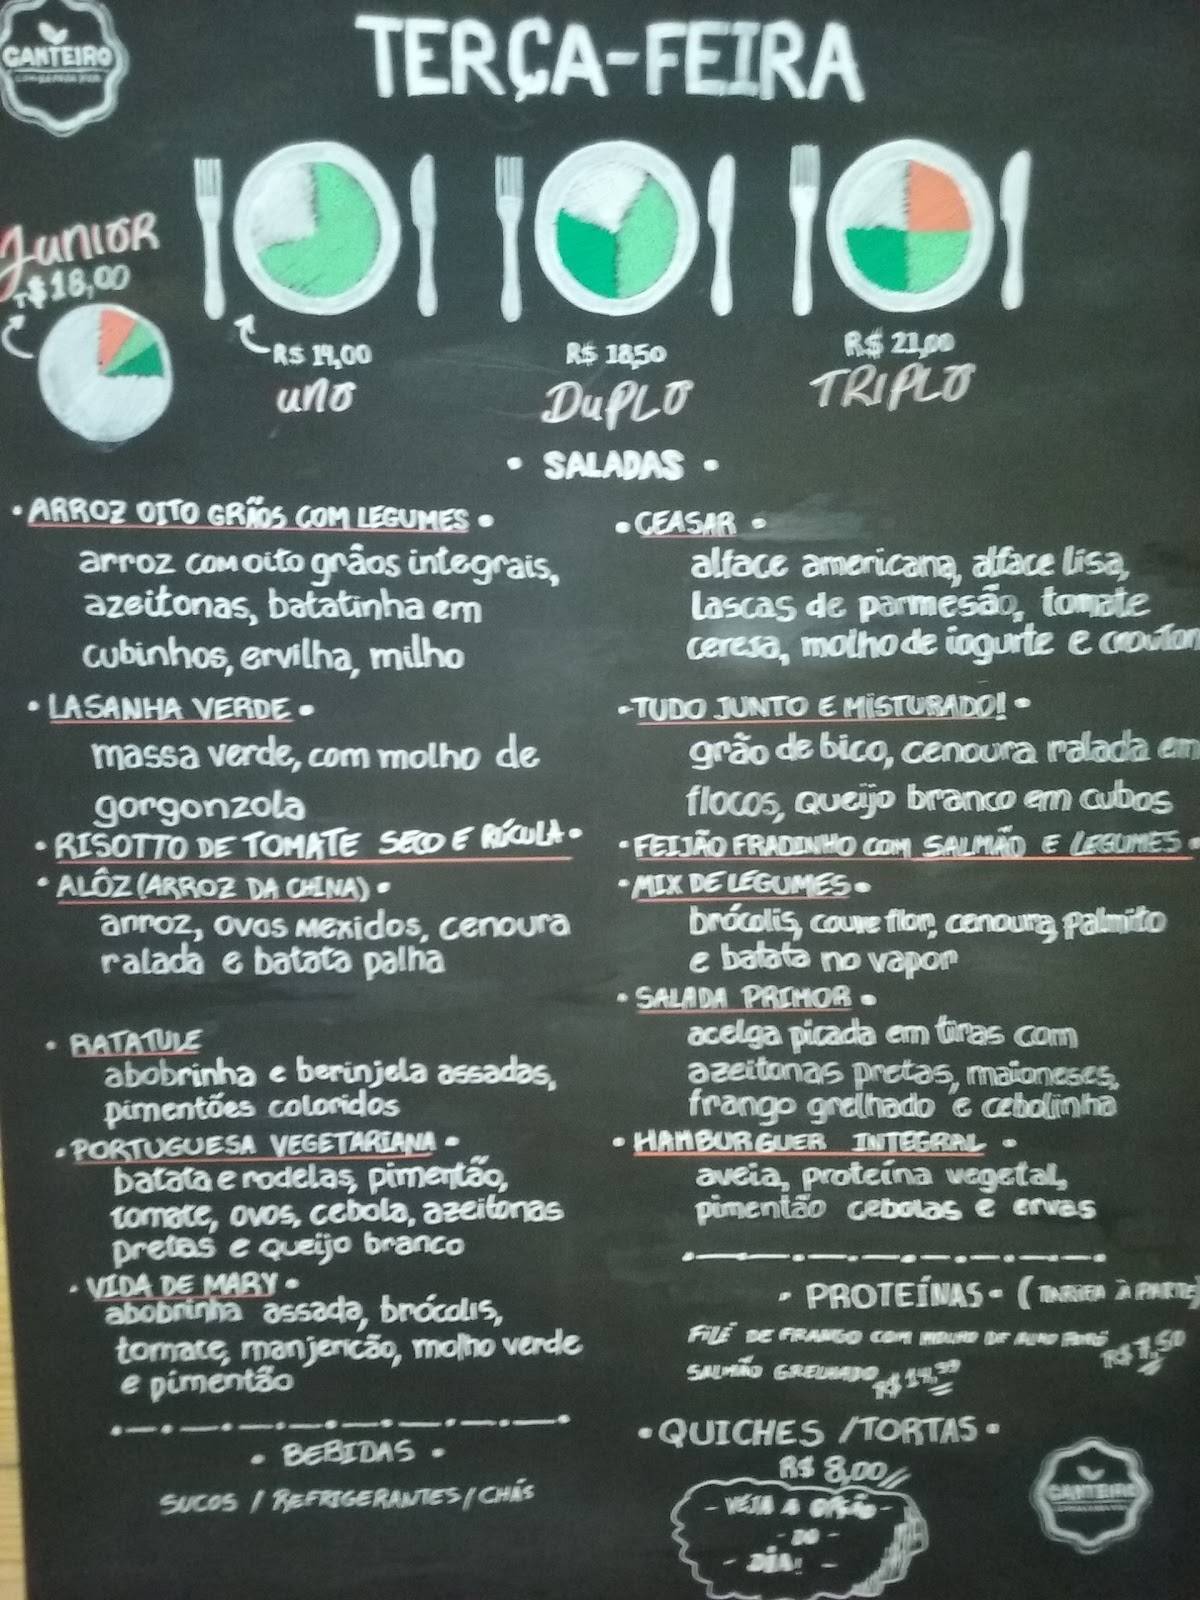 CANTEIRO
TERÇA-FEIRA
JUNIOR
R$18,00
R$ 14,00
UNO
R$ 18,50
DUPLO
R$ 21,00
TRIPLO
• SALADAS •
• ARROZ OITO GRÃOS COM LEGUMES •
arroz com oito grãos integrais,
azeitonas, batatinha em
cubinhos, ervilha, milho
• LASANHA VERDE •
massa verde, com molho de
gorgonzola
• RISOTTO DE TOMATE SECO E RÚCULA •
• ALÔZ (ARROZ DA CHINA) •
arroz, ovos mexidos, cenoura
ralada e batata palha
• RATATULE
abobrinha e berinjela assadas,
pimentões coloridos
• PORTUGUESA VEGETARIANA •
batata e rodelas, pimentão,
tomate, ovos, cebola, azeitonas
pretas e queijo branco
• VIDA DE MARY •
abobrinha assada, brócolis,
tomate, manjericão, molho verde
e pimentão
• BEBIDAS •
SUCOS / REFRIGERANTES / CHÁS
• CEASAR •
alface americana, alface lisa,
Lascas de parmesão, tomate
cereja, molho de iogurte e crouton
• TUDO JUNTO E MISTURADO! •
grão de bico, cenoura ralada em
flocos, queijo branco em cubos
• FEIJÃO FRADINHO COM SALMÃO E LEGUMES •
• MIX DE LEGUMES •
brócolis, couve flor, cenoura, palmito
e batata no vapor
• SALADA PRIMOR •
acelga picada em tiras com
azeitonas pretas, maioneses,
frango grelhado e cebolinha
• HAMBURGUER INTEGRAL •
aveia, proteína vegetal,
pimentão cebolas e ervas
• PROTEÍNAS • (TARIFA À PARTE)
FILÉ DE FRANGO COM MOLHO DE ALHO PORÓ R$ 7,50
SALMÃO GRELHADO R$ 14,99
• QUICHES / TORTAS •
R$ 8,00
- VEJA A OPÇÃO -
- DO -
- DIA!! -
CANTEIRO